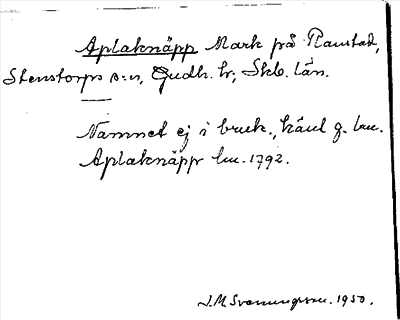 Aplaknäpp Mark på Ranstad,
Stenstorps s:n, Gudh. hr; Skb. län.
Namnet ej i bruk., känt g. lm.
Aplaknäpp lm. 1792.
J.M Svenungsson. 1950.